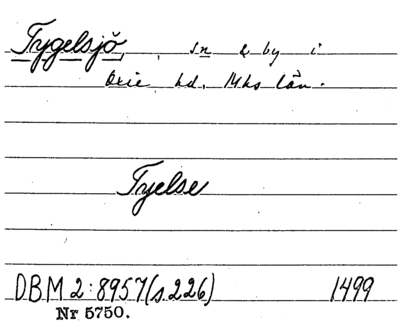 Tygelsjö, sn & by i
Oxie hd, Mhs län.
Tyelse
DBM 2:8957 (s 226) 1499
Nr 5750.